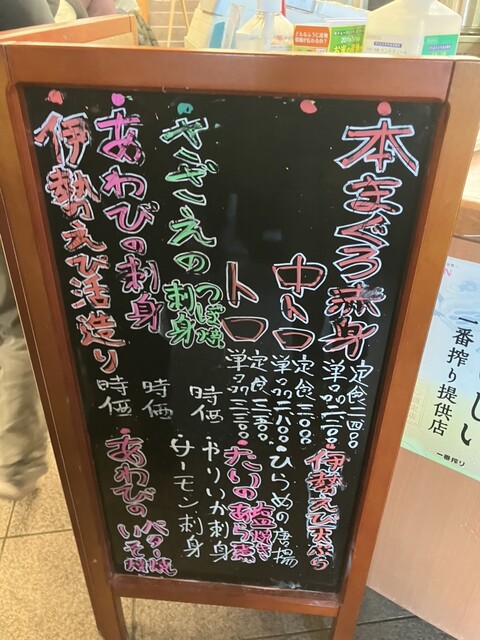 本まぐろ赤身
定食二四〇〇
単品二一〇〇
中トロ
定食三一〇〇
単品二八〇〇
トロ
定食三五〇〇
単品三二〇〇
さざえの
つぼ焼
刺身
時価
あわびの刺身
時価
伊勢えび活造り
時価
伊勢えび天ぷら
ひらめの唐揚
たいの
塩焼き
あら煮
やりいか刺身
サーモン刺身
あわびの
バター焼
いそ焼
しい
一番搾り提供店
一番搾り